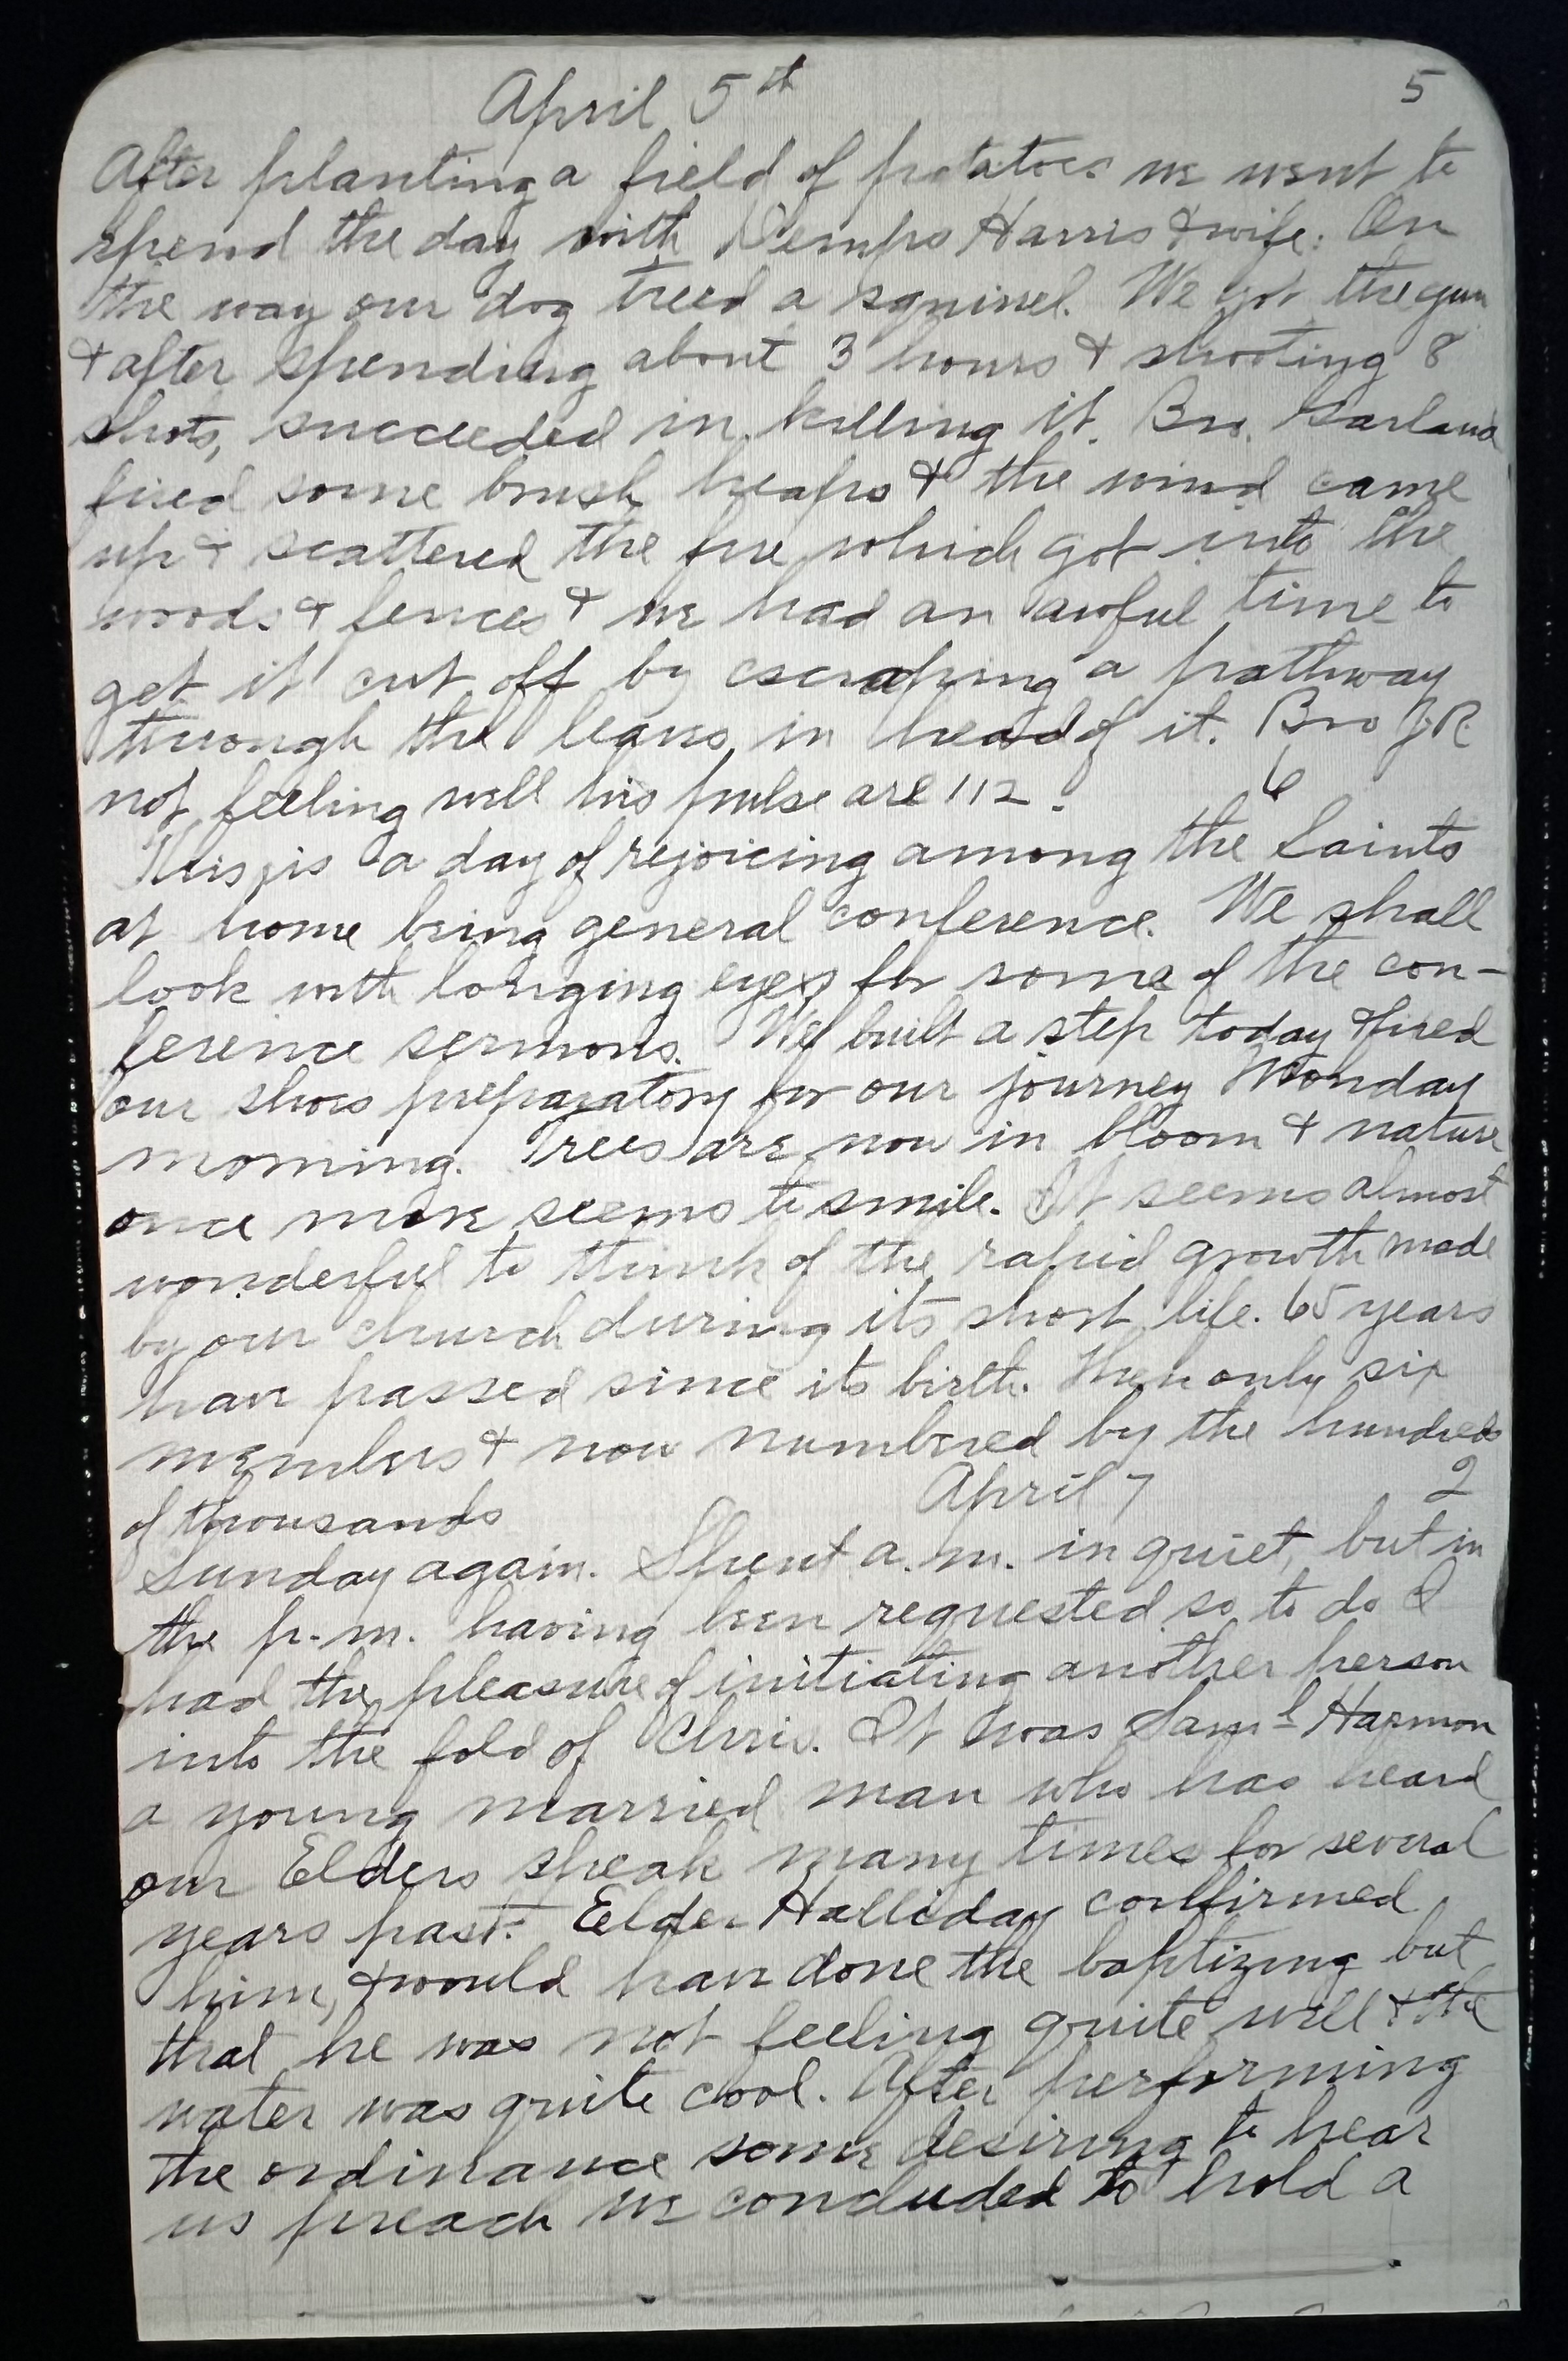 April 5th 5
After planting a field of potatoes we went to
spend the day with Kemps Harris & wife. On
the way our dog treed a squirrel. We got the gun
& after spending about 3 hours & shooting 8
shots, succeeded in killing it. Bro. Garland
fired some brush heaps & the wind came
up & scattered the fire which got into the
woods & fences & we had an awful time to
get it cut off by escraping a pathway
through the leaves in head of it. Bro J.R.
not feeling well his pulse are 112.
6
This is a day of rejoicing among the Saints
at home being general conference. We shall
look with longing eyes for some of the con-
ference sermons. We built a step today & fixed
our shoes preparatory for our journey Monday
morning. Trees are now in bloom & nature
once more seems to smile. It seems almost
wonderful to think of the rapid growth made
by our church during its short life. 65 years
have passed since its birth. Then only six
members & now numbered by the hundreds
of thousands April 7 2
Sunday again. Spent a.m. in quiet, but in
the p.m. having been requested so to do I
had the pleasure of initiating another person
into the fold of Chris. It was Saml Harmon
a young married man who has heard
our Elders speak many times for several
years past. Elder Halliday confirmed
him, & would have done the baptizing but
that he was not feeling quite well & the
water was quite cool. After performing
the ordinance some desiring to hear
us preach we concluded to hold a